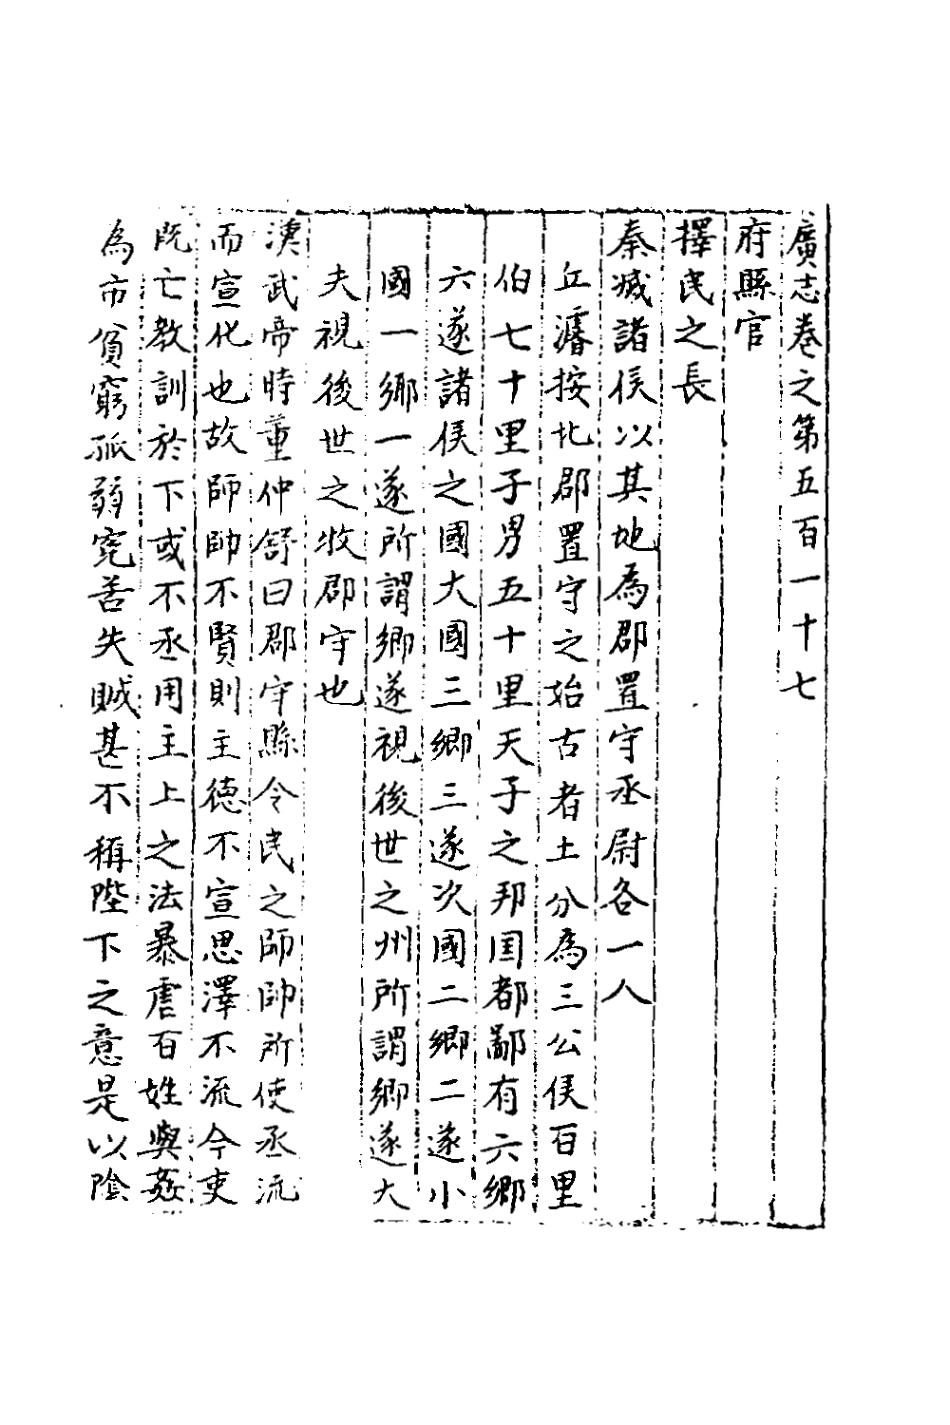 廣志卷之第五百一十七
府縣官
擇民之長
秦滅諸侯以其地為郡置守丞尉各一人
丘濬按比郡置守之始古者土分為三公侯百里
伯七十里子男五十里天子之邦国都鄙有六鄉
六遂諸侯之國大國三鄉三遂次國二鄉二遂小
國一鄉一遂所謂鄉遂視後世之州所謂鄉遂大
夫視後世之牧郡守也
漢武帝時董仲舒曰郡守縣令民之師帥所使丞流
而宣化也故師帥不賢則主德不宣思澤不流今吏
既亡教訓於下或不丞用主上之法暴虐百姓與姦
為市貧窮孤弱寃苦失賊甚不稱陛下之意是以陰